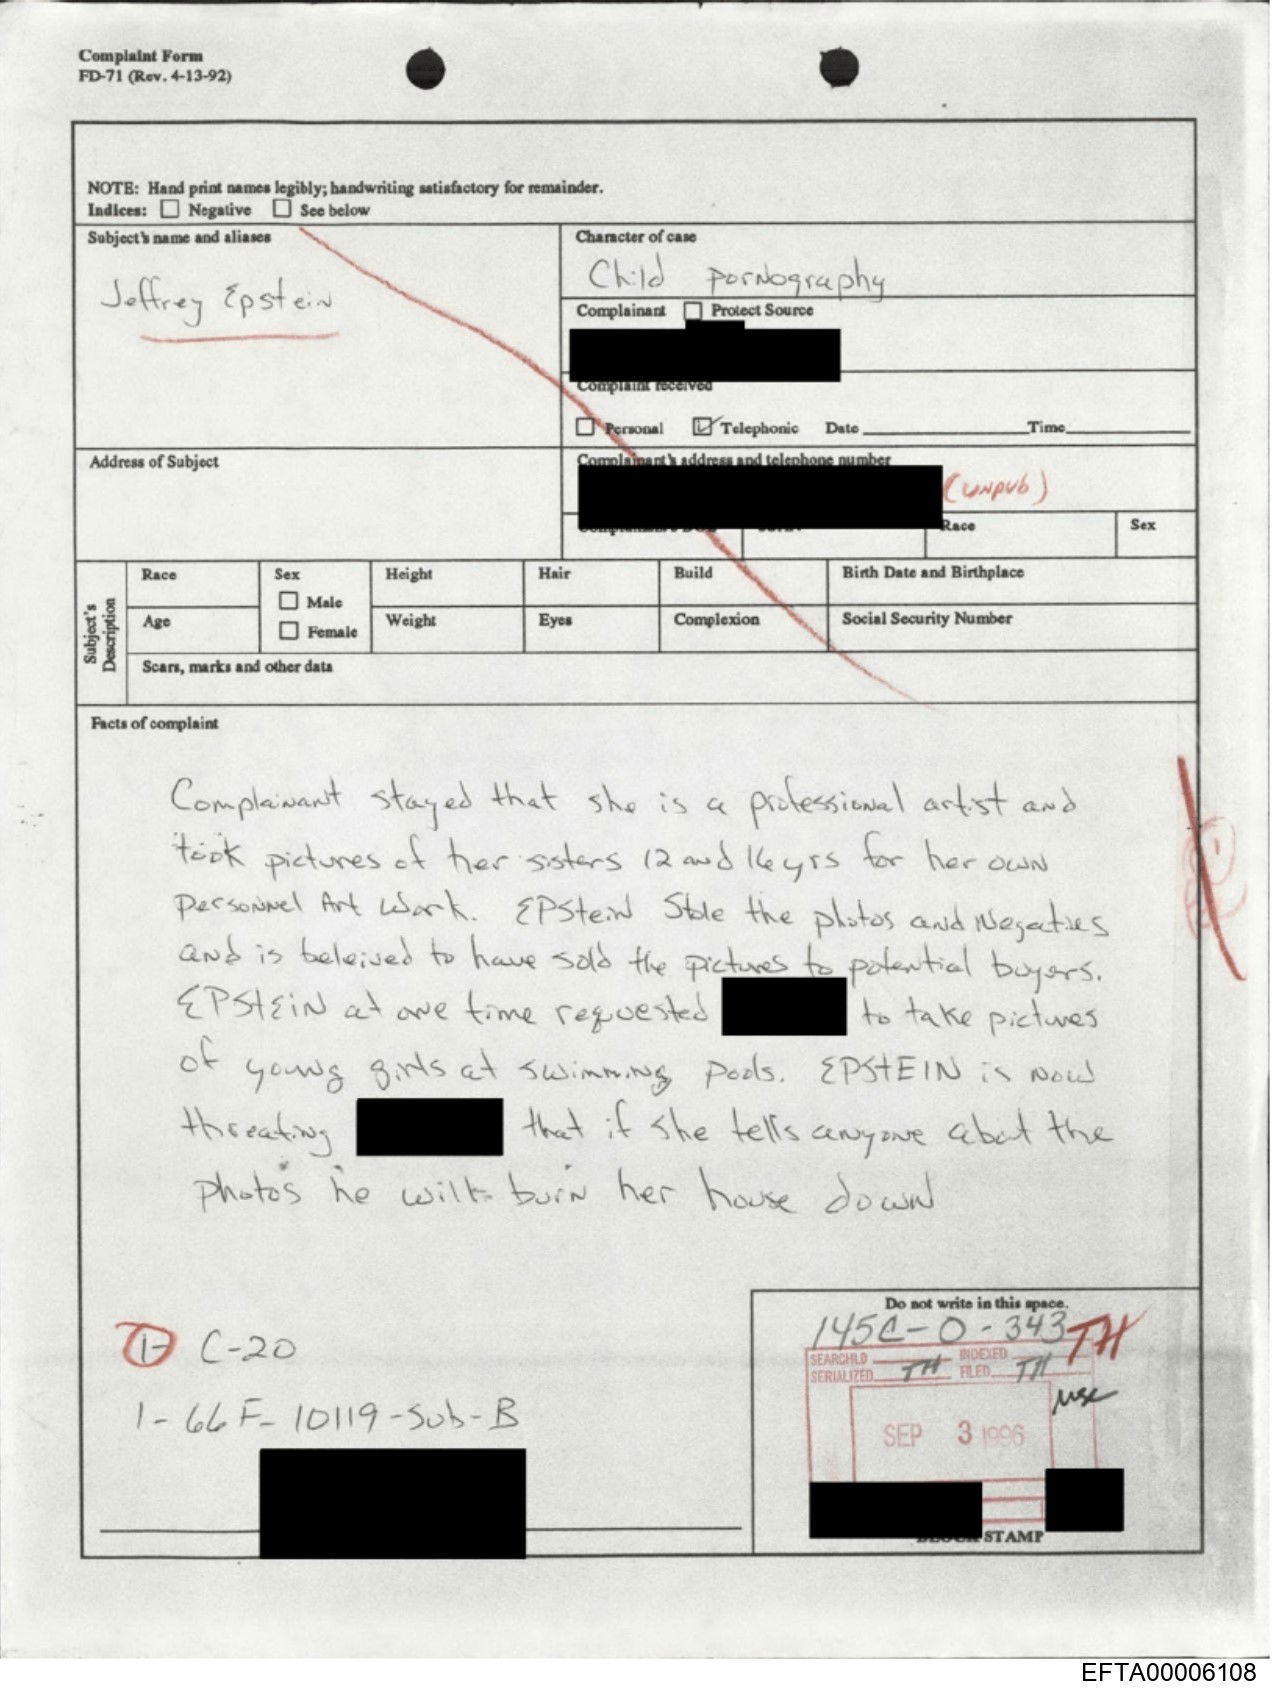 Complaint Form
FD-71 (Rev. 4-13-92)
NOTE: Hand print names legibly; handwriting satisfactory for remainder.
Indices: Negative See below
Subject's name and aliases
Jeffrey Epstein
Character of case
Child pornography
Complainant Protect Source
Complaint received
Personal Telephonic Date Time
Address of Subject
Complainant's address and telephone number
(unpub)
Race Sex
Subject's Description
Race Sex Height Hair Build Birth Date and Birthplace
Male
Age Weight Eyes Complexion Social Security Number
Female
Scars, marks and other data
Facts of complaint
Complainant stayed that she is a professional artist and
took pictures of her sisters 12 and 16 yrs for her own
personnel Art Work. EPStein Stole the photos and Negatives
and is beleived to have sold the pictures to potential buyers.
EPStEiN at one time requested to take pictures
of young girls at swimming pools. EPStEIN is now
threating that if she tells anyone about the
photos he will burn her house down
1- C-20
1- 66F-10119-Sub-B
Do not write in this space.
145C-O-343 TH
SEARCHED INDEXED
SERIALIZED TH FILED TH
SEP 3 1996
BLOCK STAMP
EFTA00006108